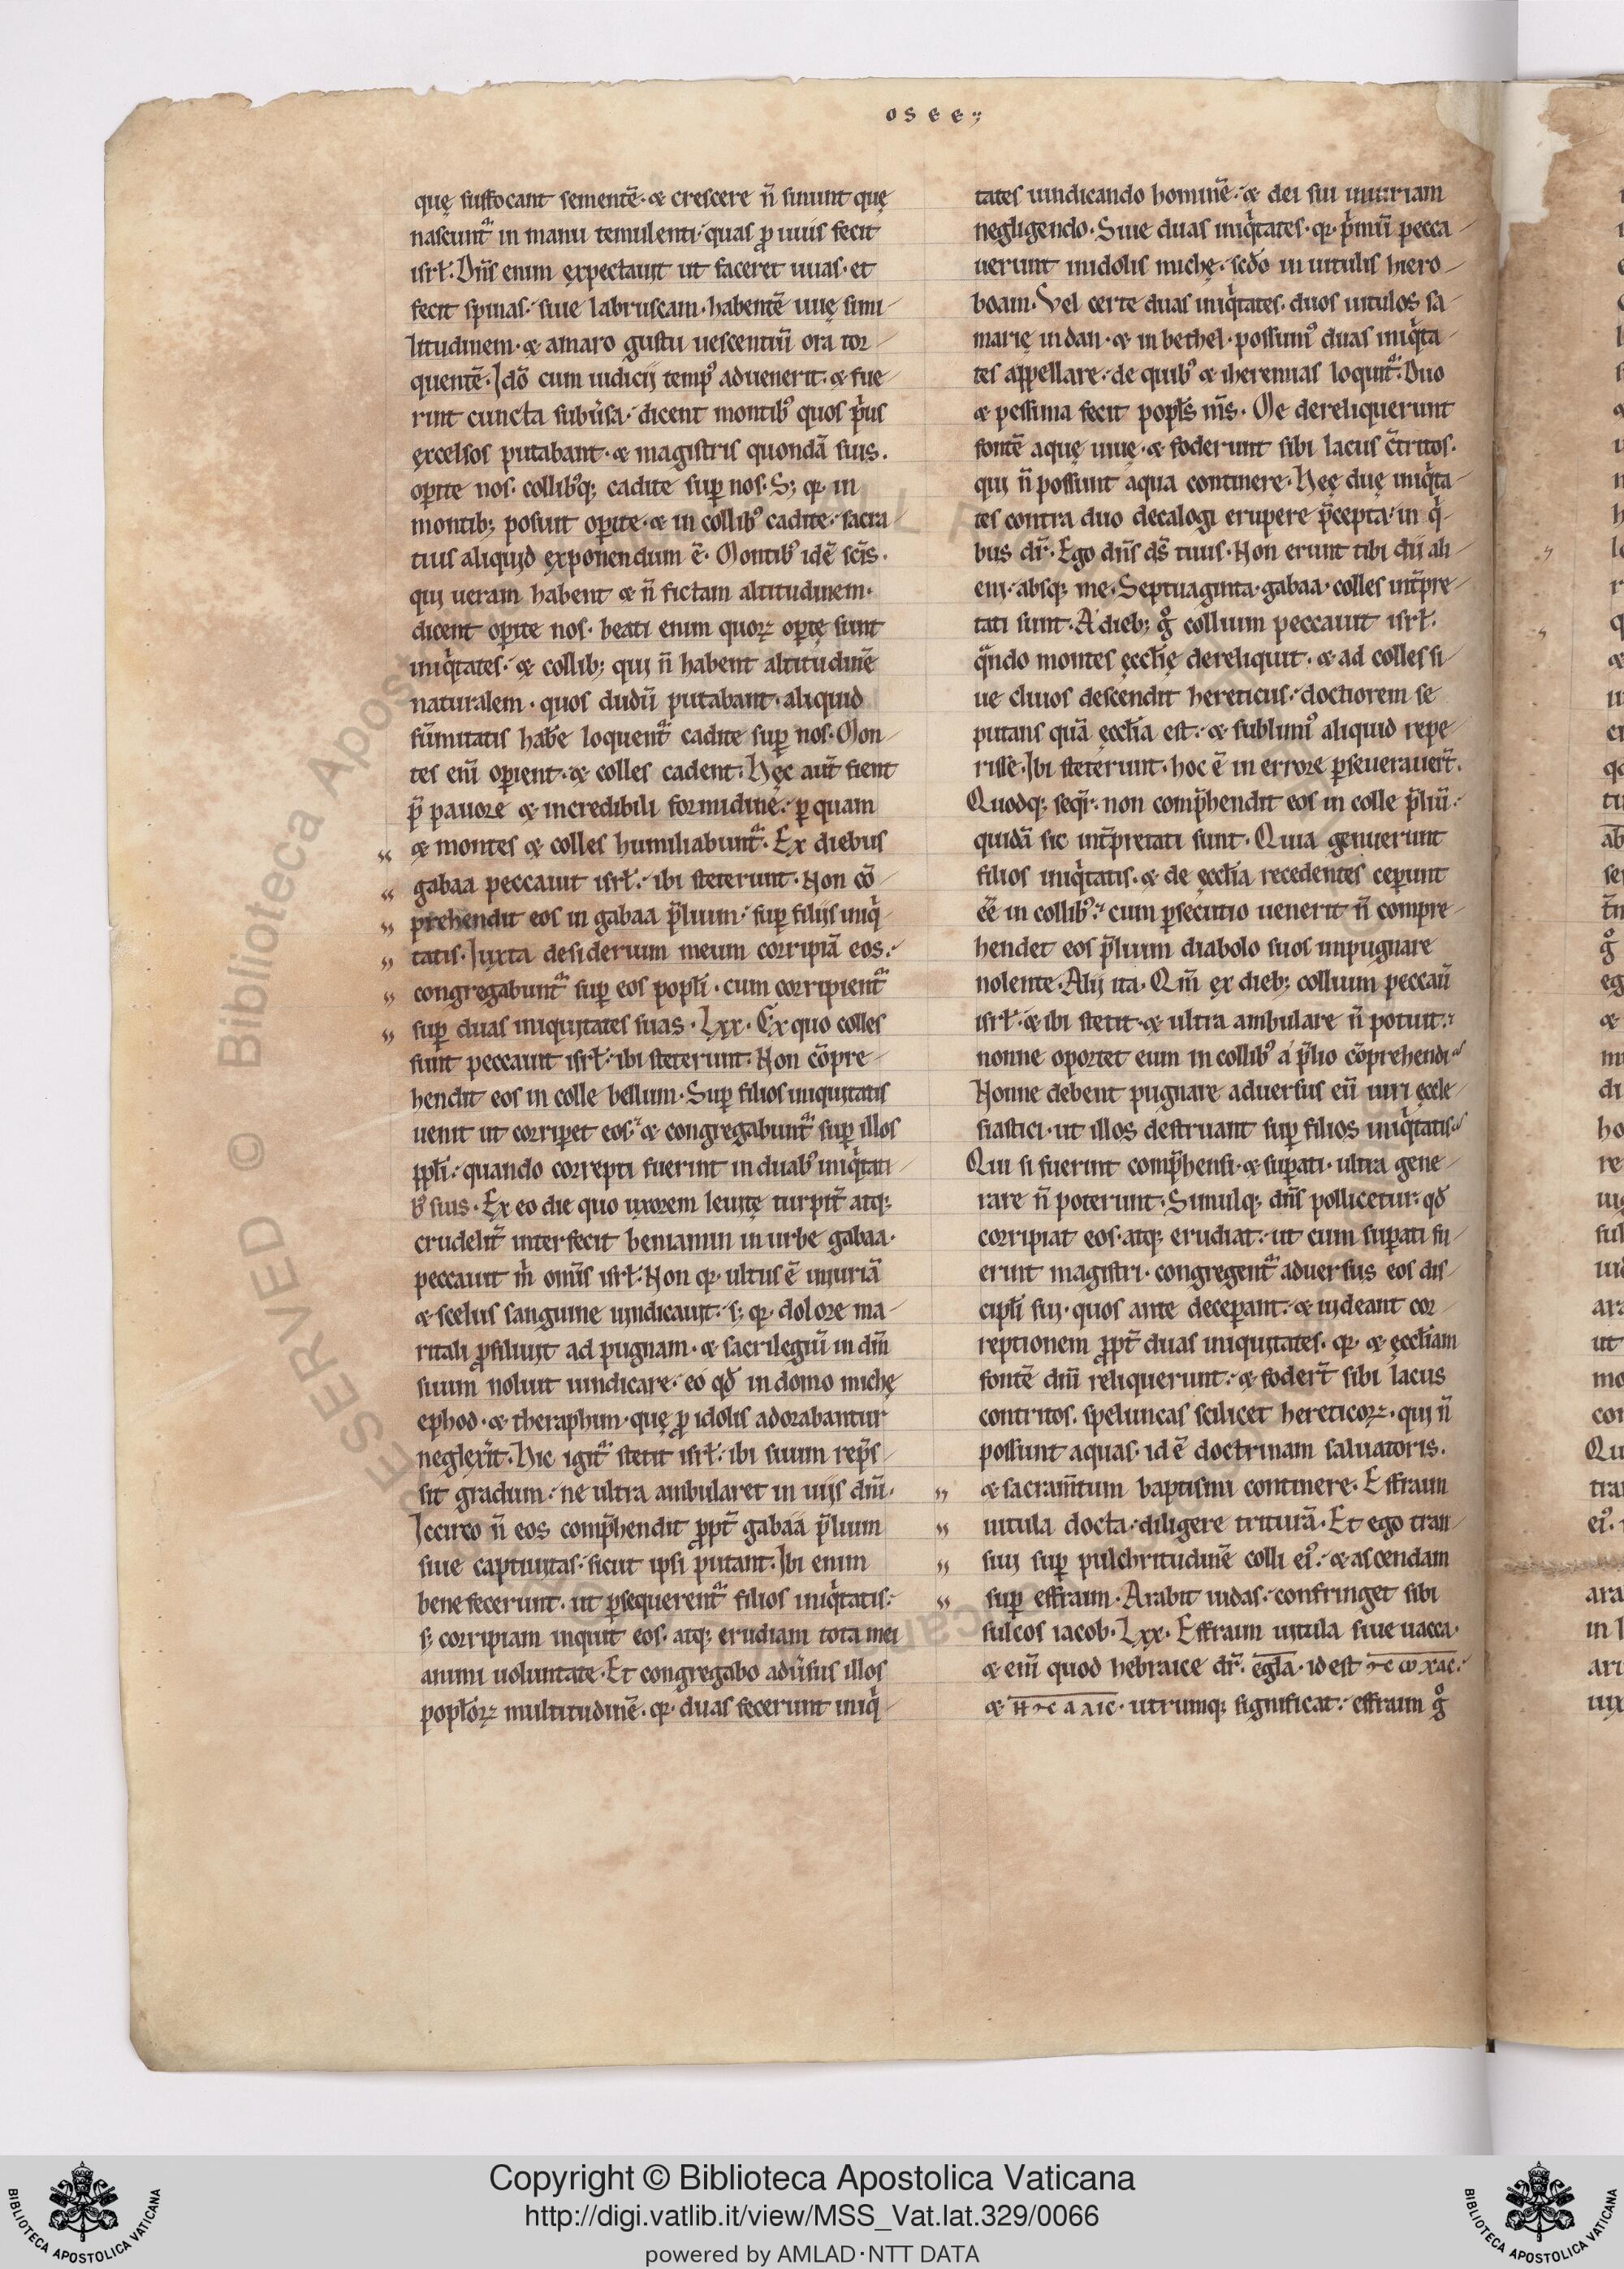 osee;
quę suffocant sementē· & crescere n̄ sinunt quę
nascunt᷑ in manu temulenti· quas ꝓ uuis fecit
isrł· Dn̄s enim expectauit ut faceret uuas· et
fecit spinas· siue labruscam· habentē uuę simi
litudinem· & amaro gustu uescentiū ora tor
quentē· Idō cum iudicij temp᷒ aduenerit· & fue
rint cuncta subu̾sa· dicent montib᷒ quos p̾us
excelsos putabant· & magistris quondā suis·
opite nos· collib᷒q; cadite suꝑ nos· S; qꝛ in
montib; posuit opite· & in collib᷒ cadite· sacra
tius aliquid exponendum ē· Montib᷒ idē scīs·
qui ueram habent & n̄ fictam altitudinem·
dicent opite nos· beati enim quoꝝ optę sunt
iniq̾tates· & collib; qui n̄ habent altitudinē
naturalem· quos dudū putabant· aliquid
sūmitatis habe̅ loquent᷑ cadite suꝑ nos· Mon
tes eni̅ opient· & colles cadent· Hęc aut̅ fient
p̄ pauore & incredibili formidine· ꝑ quam
& montes & colles humiliabunt᷑· Ex diebus
gabaa peccauit isrł· ibi steterunt· Non cō
prehendit eos in gabaa p̄lium· suꝑ filijs iniq̾
tatis· Iuxta desiderium meum corripiā eos·
congregabunt᷑ suꝑ eos popłi· cum corripient᷑
suꝑ duas iniquitates suas· Lxx· Ex quo colles
sunt peccauit isrł· ibi steterunt· Non cōpre
hendit eos in colle bellum· Suꝑ filios iniquitatis
uenit ut corripet eos· & congregabunt᷑ suꝑ illos
ppłi· quando correpti fuerint in duab᷒ iniq̾tati
b᷒ suis· Ex eo die quo uxorem leuitę turpit̄ atq;
crudelit̄ interfecit beniamin in urbe gabaa·
peccauit m̾ om̄s isrł· Non qꝛ ultus ē iniuriā
& scelus sanguine uindicauit· s; qꝛ dolore ma
ritali ꝓsiliuit ad pugnam· & sacrilegiū in dn̄i
suum noluit uindicare· eo qd̄ in domo michę
ephod· & theraphim· quę ꝓ idolis adorabantur
neglexit̄· Hic igit᷑ stetit isrł· ibi suum rep̄s
sit gradum· ne ultra ambularet in uijs dn̄i·
Iccirco n̄ eos comp̄hendit ꝓpt̄ gabaa p̄lium
siue captiuitas· sicut ipsi putant· Ibi enim
bene fecerunt· ut ꝑsequerent᷑ filios iniq̾tatis·
s; corripiam inquit eos· atq; erudiam tota mei
animi uoluntate· Et congregabo adu̾sus illos
popłoꝝ multitudinē· qꝛ duas fecerunt iniq̾
tates uindicando hominē· & dei sui iniuriam
negligendo· Siue duas iniq̾tates· qꝛ p̾mū pecca
uerunt in idolis michę· scd̄o in uitulis hiero
boam· Vel certe duas iniq̾tates· duos uitulos sa
marię in dan· & in bethel· possum᷒ duas iniq̾ta
tes appellare· de quib᷒ & iheremias loquit᷑· Duo
& pessima fecit popłs m̄s· Me dereliquerunt
fontē aquę uiuę· & foderunt sibi lacus c̄tritos·
qui n̄ possunt aqua continere· Hęę duę iniq̾ta
tes contra duo decalogi erupere p̄cepta· in q̾
bus dr̄· Ego dn̄s ds̄ tuus· Non erunt tibi dij ali
eni· absq; me· Septuaginta· gabaa· colles int̄pre
tati sunt· A dieb; gͦ collium peccauit isrł·
qn̄do montes ęccłię dereliquit· & ad colles si
ue cliuos descendit hereticus· doctiorem se
putans quā ęccłia est· & sublimi᷒ aliquid repe
risse· Ibi steterunt· hoc ē in errore ꝑseuerauer̄t·
Quodq; seqr̄· non comp̄hendit eos in colle p̄liū·
quidā sic int̄pretati sunt· Quia genuerunt
filios iniq̾tatis· & de ęccłia recedentes ceperunt
ēē in collib᷒· cum ꝑsecutio uenerit n̄ compre
hendet eos p̄lium diabolo suos inpugnare
nolente· Alij ita· Qm̄ ex dieb; collium peccau̅
isrł· & ibi stetit· & ultra ambulare n̄ potuit·
nonne oportet eum in collib᷒ a p̄lio cōprehendi
Nonne debent pugnare aduersus eū uiri ęccle
siastici· ut illos destruant suꝑ filios iniq̾tatis
Qui si fuerint comp̄hensi· & supati· ultra gene
rare n̄ poterunt· Simulq; dn̄s pollicetur· qd̄
corripiat eos· atq; erudiat· ut cum supati fu
erint magistri· congregent᷑ aduersus eos dis
cipłi sui· quos ante decepant· & uideant cor
reptionem ꝓpt̄ duas iniquitates· qꝛ & ęccłiam
fontē dn̄i reliquerunt· & foder̄t sibi lacus
contritos· speluncas scilicet hereticoꝝ· qui n̄
possunt aquas· id ē doctrinam saluatoris·
& sacram̄tum baptismi continere· Effraim
uitula docta· diligere triturā· Et ego tran
siui suꝑ pulchritudinē colli ei᷒· & ascendam
suꝑ effraim· Arabit iudas· confringet sibi
sulcos iacob· Lxx· Effraim uitula siue uacca·
& eni̅ quod hebraice dr̄· egla· id est
& utrumq; significat· effraim gͦ
Copyright © Biblioteca Apostolica Vaticana
http://digi.vatlib.it/view/MSS_Vat.lat.329/0066
powered by AMLAD·NTT DATA
BIBLIOTECA APOSTOLICA VATICANA
BIBLIOTECA APOSTOLICA VATICANA